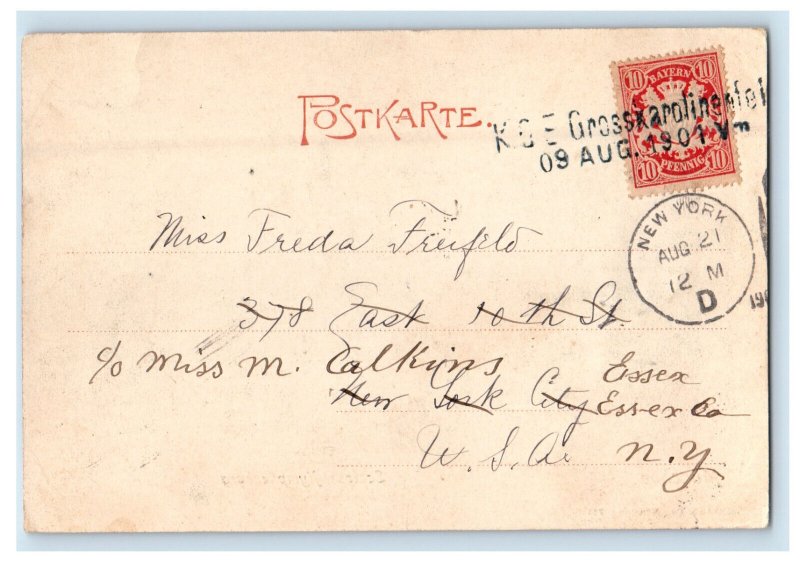 POSTKARTE.
K.B.E Grosskarolinenfel
09 AUG. 1901 Vm
10 BAYERN 10
10 PFENNIG 10
NEW YORK
AUG 21
12 M
D
190
Miss Freda Freifeld
378 East 10th St.
c/o Miss M. Calkins
Essex
New York City Essex Co
U.S.A. N.Y